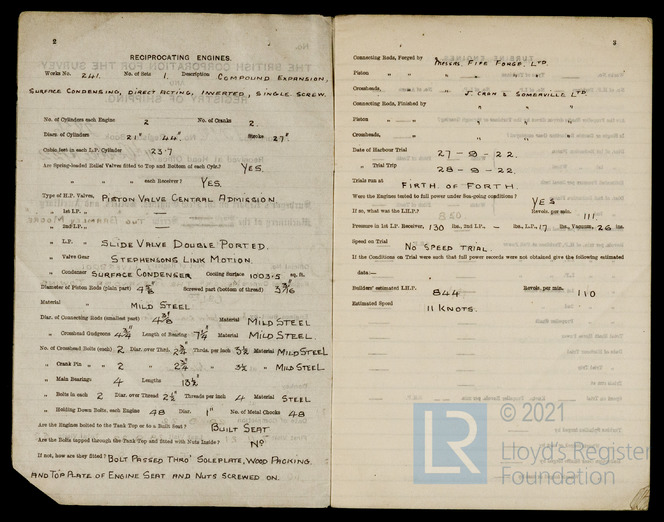 2
RECIPROCATING ENGINES.
Works No. 241. No. of Sets 1. Description COMPOUND EXPANSION,
SURFACE CONDENSING, DIRECT ACTING, INVERTED, SINGLE SCREW.
No. of Cylinders each Engine 2 No. of Cranks 2.
Diars. of Cylinders 21" 44" Stroke 27"
Cubic feet in each L.P. Cylinder 23.7
Are Spring-loaded Relief Valves fitted to Top and Bottom of each Cylr.? YES.
„ „ each Receiver? YES.
Type of H.P. Valves, PISTON VALVE CENTRAL ADMISSION.
„ 1st I.P. „ —
„ 2nd I.P. „ —
„ L.P. „ SLIDE VALVE DOUBLE PORTED.
„ Valve Gear STEPHENSONS LINK MOTION.
„ Condenser SURFACE CONDENSER Cooling Surface 1003.5 sq. ft.
Diameter of Piston Rods (plain part) Screwed part (bottom of thread) 3 3/16"
Material „ MILD STEEL
Diar. of Connecting Rods (smallest part) Material MILD STEEL
„ Crosshead Gudgeons 4 3/4" Length of Bearing Material MILD STEEL
No. of Crosshead Bolts (each) 2 Diar. over Thrd. 2 3/4" Thrds. per inch 3½ Material MILD STEEL
„ Crank Pin „ „ 2 „ 2 3/4" „ 3½ „ MILD STEEL
„ Main Bearings 4 Lengths 13½"
„ Bolts in each 2 Diar. over Thread 2½" Threads per inch 4 Material STEEL
„ Holding Down Bolts, each Engine 48 Diar. 1" No. of Metal Chocks 48
Are the Engines bolted to the Tank Top or to a Built Seat? BUILT SEAT
Are the Bolts tapped through the Tank Top and fitted with Nuts Inside? NO
If not, how are they fitted? BOLT PASSED THRO' SOLEPLATE, WOOD PACKING
AND TOP PLATE OF ENGINE SEAT AND NUTS SCREWED ON.
3
Connecting Rods, Forged by MESSRS. FIFE FORGE, LTD.
Piston „ „ „ „
Crossheads, „ J. CRAN & SOMERVILLE LTD.
Connecting Rods, Finished by „ „
Piston „ „ „ „
Crossheads, „ „ „
Date of Harbour Trial 27-9-22.
„ Trial Trip 28-9-22.
Trials run at FIRTH OF FORTH.
Were the Engines tested to full power under Sea-going conditions? YES
If so, what was the I.H.P.? Revols. per min. 111.
Pressure in 1st I.P. Receiver, 130 lbs., 2nd I.P. - lbs., L.P. 17 lbs., Vacuum, 26 ins.
Speed on Trial NO SPEED TRIAL.
If the Conditions on Trial were such that full power records were not obtained give the following estimated
data:—
Builders' estimated I.H.P. 844 Revols. per min. 110
Estimated Speed 11 KNOTS.
© 2021
LR
Lloyd's Register
Foundation